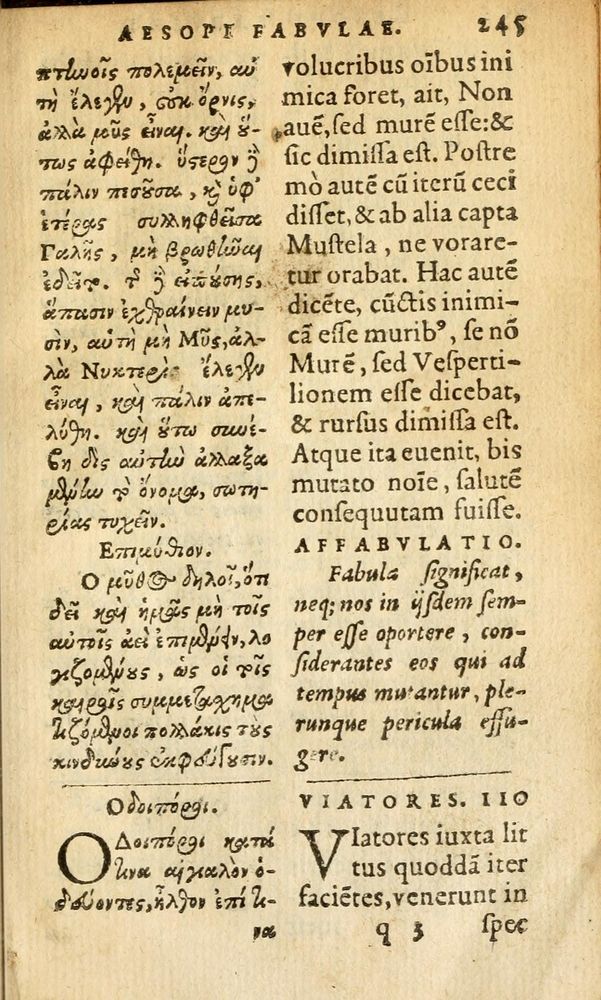 AESOPI FABVLAE. 245
πτηνοῖς πολεμεῖν, αὐ
τὴ ἔλεγεν, οὐκ ὄρνις,
ἀλλὰ μῦς εἶναι. καὶ οὕ-
τως ἀφείθη. ὕστερον δὲ
πάλιν πεσοῦσα, καὶ ὑφ'
ἑτέρας συλληφθεῖσα
Γαλῆς, μὴ βρωθῆναι
ἐδεῖτο. τῆς δὲ εἰπούσης,
ἅπασιν ἐχθραίνειν μυ-
σὶν, αὐτὴ μὴ Μῦς, ἀλ-
λὰ Νυκτερὶς ἔλεγεν
εἶναι, καὶ πάλιν ἀπε-
λύθη. καὶ οὕτω συνέ-
βη δὶς αὐτὴν ἀλλαξα
μένην τὸ ὄνομα, σωτη-
ρίας τυχεῖν.
Επιμύθιον.
Ο μῦθος δηλοῖ, ὅτι
δεῖ καὶ ἡμᾶς μὴ τοῖς
αὐτοῖς ἀεὶ ἐπιμένειν, λο
γιζομένους, ὡς οἱ τοῖς
καιροῖς συμμετασχημα
τιζόμενοι πολλάκις τοὺς
κινδύνους ἐκφεύγουσιν.
Οδοιπόροι.
ΟΔοιπόροι κατά
τινα αἰγιαλὸν ὁ-
δεύοντες, ἦλθον ἐπί τι-
να
volucribus oībus ini
mica foret, ait, Non
auē, sed murē esse: &
sic dimissa est. Postre
mò autē cū iterū ceci
disset, & ab alia capta
Mustela, ne vorare-
tur orabat. Hac autē
dicēte, cūctis inimi-
cā esse muribꝰ, se nō
Murē, sed Vesperti-
lionem esse dicebat,
& rursus dimissa est.
Atque ita euenit, bis
mutato noīe, salutē
consequutam fuisse.
AFFABVLATIO.
Fabula significat,
neq; nos in ijsdem sem-
per esse oportere, con-
siderantes eos qui ad
tempus mutantur, ple-
runque pericula effu-
gere.
VIATORES. 110
VIatores iuxta lit
tus quoddā iter
faciētes, venerunt in
q 3 spec